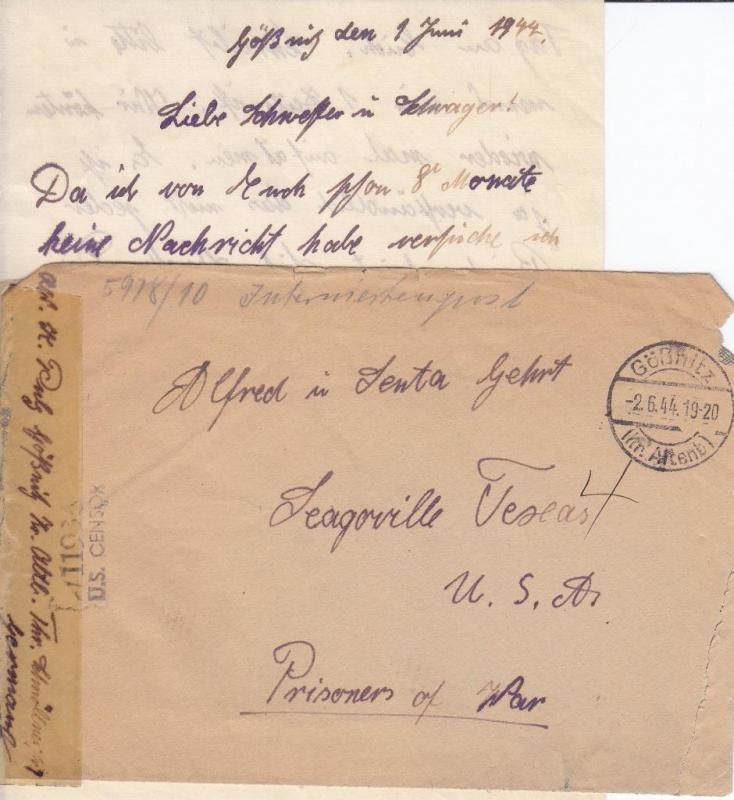 Gößnitz den 1 Juni 1944
Liebe Schwester u Schwager!
Da ich von Euch schon 8 Monate
keine Nachricht habe versuche ich
5918/10 Interniertenpost
Alfred u Senta Gehrt
Seagoville Texas
U. S. A.
Prisoners of War
Gößnitz
-2.6.44.19-20
(Kr. Altenb)
U.S. CENSOR
Gößnitz Kr. Altb. Thr.
Germany